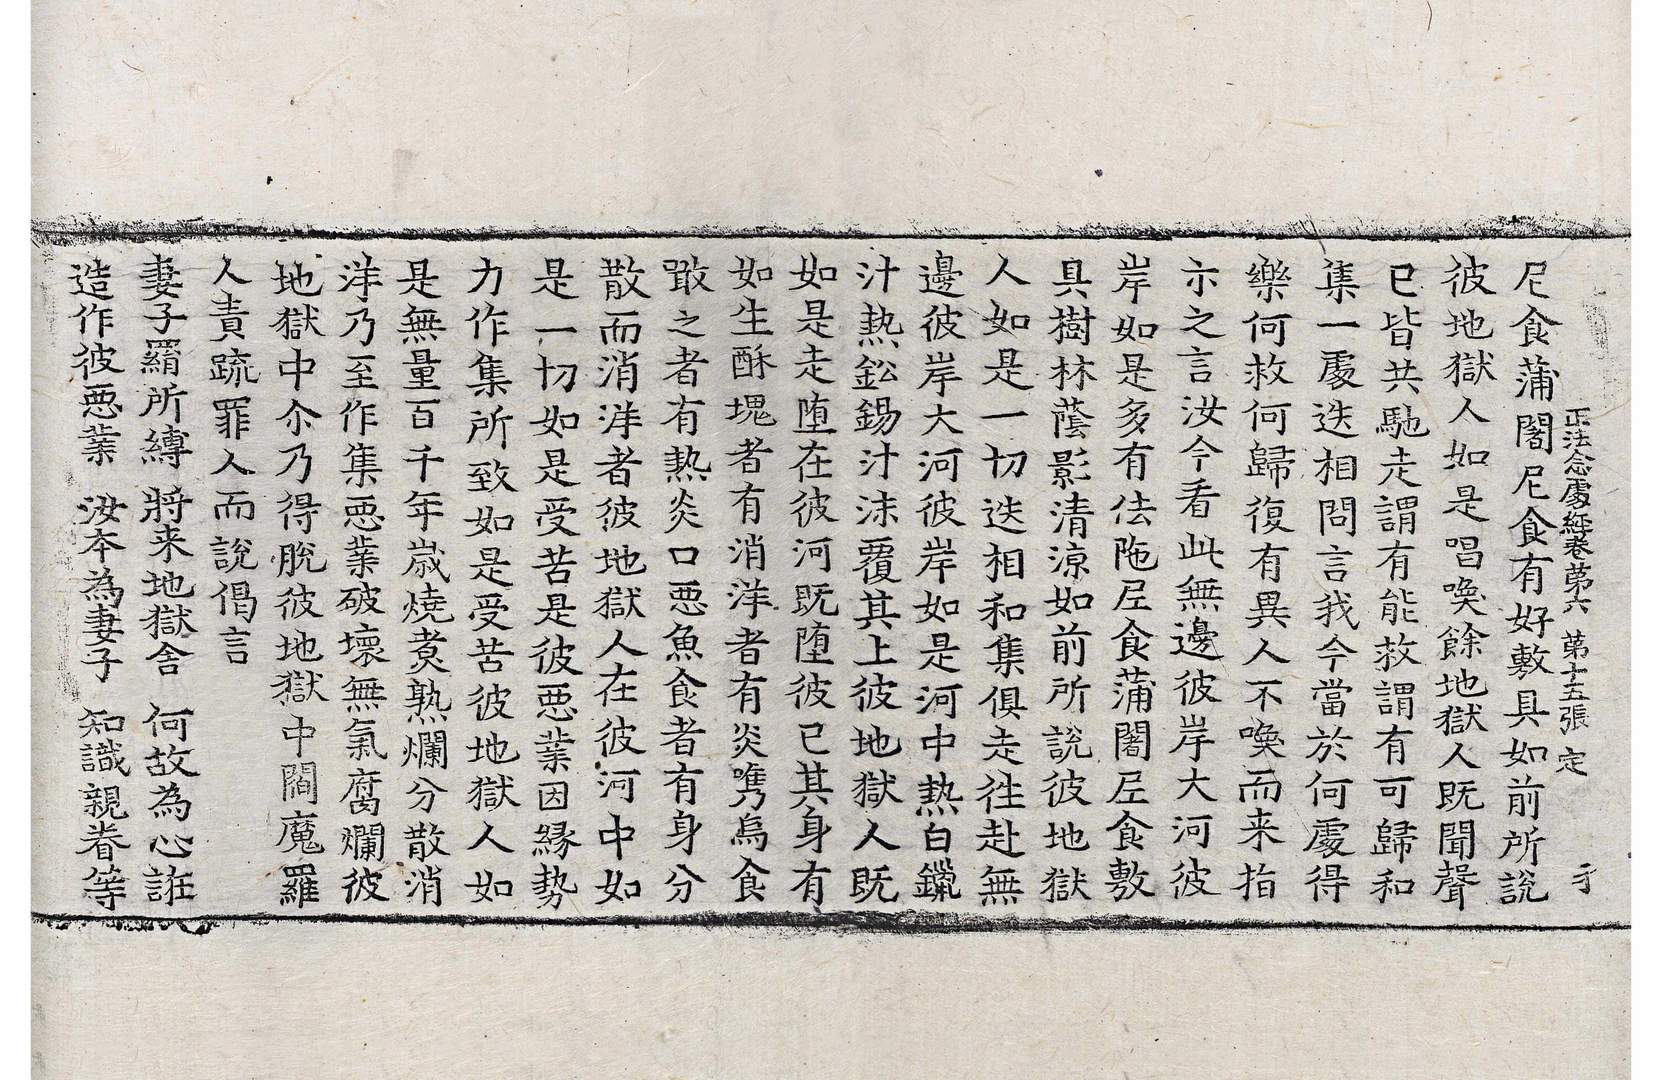 正法念處經卷第六 第十五張 定
尼食蒲闍尼食有好敷具如前所說
彼地獄人如是唱喚餘地獄人既聞聲
已皆共馳走謂有能救謂有可歸和
集一處迭相問言我今當於何處得
樂何救何歸復有異人不喚而来指
示之言汝今看此無邊彼岸大河彼
岸如是多有佉陁尼食蒲闍尼食敷
具樹林蔭影清涼如前所說彼地獄
人如是一切迭相和集俱走往赴無
邊彼岸大河彼岸如是河中熱白鑞
汁熱鈆錫汁沫覆其上彼地獄人既
如是走墮在彼河既墮彼已其身有
如生酥塊者有消洋者有炎嘴烏食
噉之者有熱炎口惡魚食者有身分
散而消洋者彼地獄人在彼河中如
是一切如是受苦是彼惡業因緣勢
力作集所致如是受苦彼地獄人如
是無量百千年歲燒煑熟爛分散消
洋乃至作集惡業破壞無氣腐爛彼
地獄中尒乃得脫彼地獄中閻魔羅
人責疏罪人而說偈言
妻子羂所縛 將来地獄舍 何故為心誑
造作彼惡業 汝本為妻子 知識親眷等